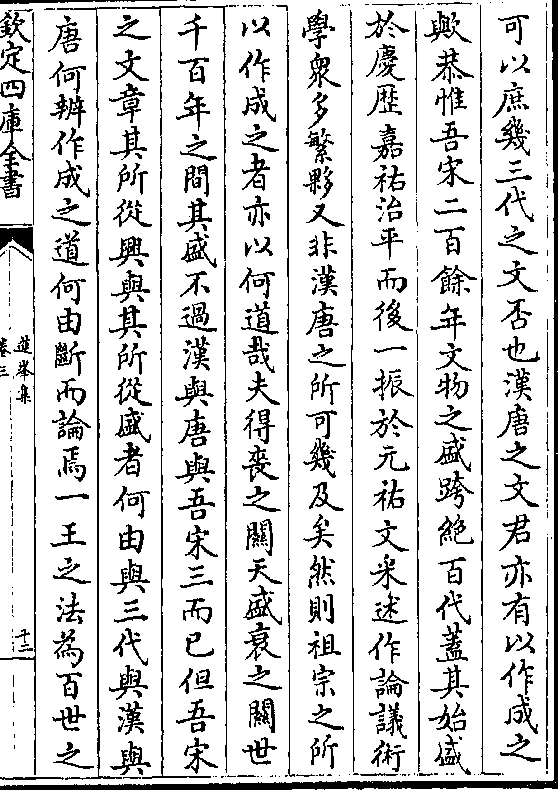 可以庶幾三代之文否也漢唐之文君亦有以作成之
歟恭惟吾宋二百餘年文物之盛跨絶百代蓋其始盛
於慶歴嘉祐治平而後一振於元祐文采述作論議術
學衆多繁夥又非漢唐之所可幾及矣然則祖宗之所
以作成之者亦以何道哉夫得喪之闗天盛衰之闗世
千百年之間其盛不過漢與唐與吾宋三而已但吾宋
之文章其所從興與其所從盛者何由與三代與漢與
唐何辨作成之道何由斷而論焉一王之法為百世之
欽定四庫全書
蓮峯集
卷三
十二